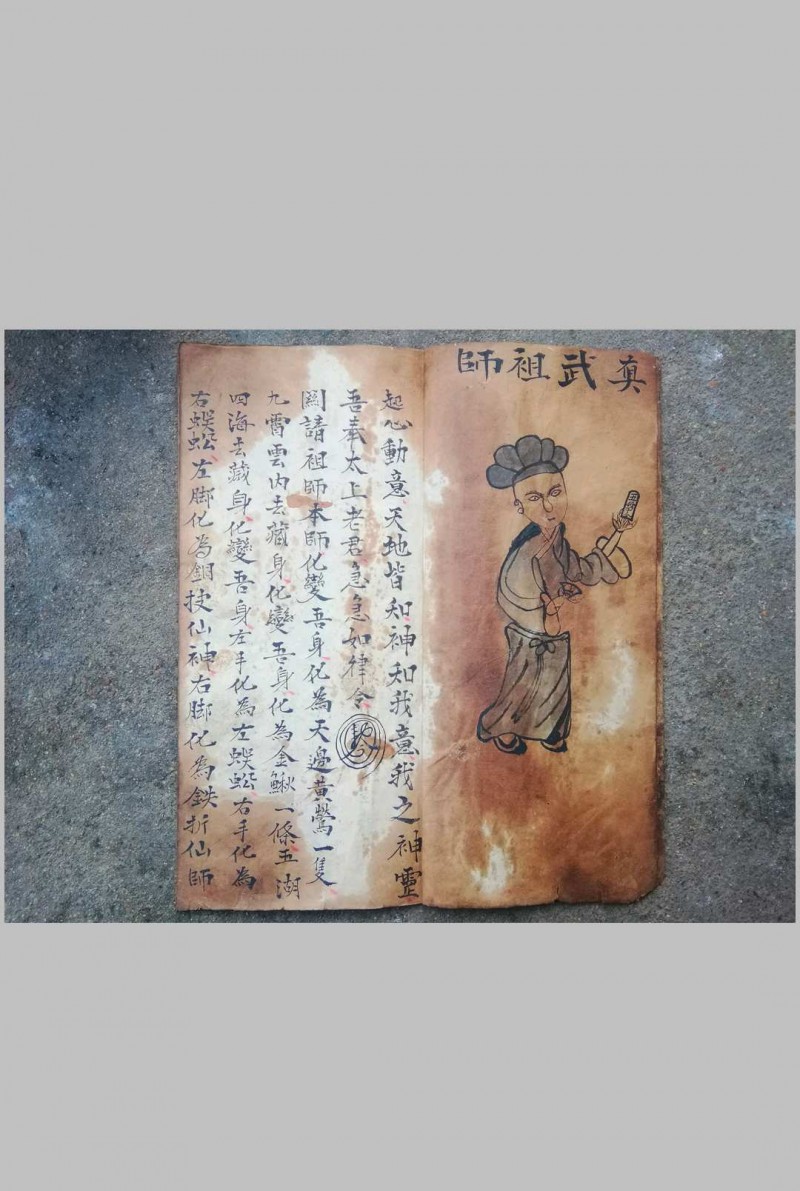 真武祖師
起心動意天地皆知神知我意我之神靈
吾奉太上老君急急如律令
請祖師本師化變吾身化為天邊黃鶯一隻
九霄雲內去藏身化變吾身化為金鰍一條五湖
四海去藏身化變吾身左手化為左蜈蚣右手化為
右蜈蚣左脚化為銅仙神右脚化為鉄折仙師